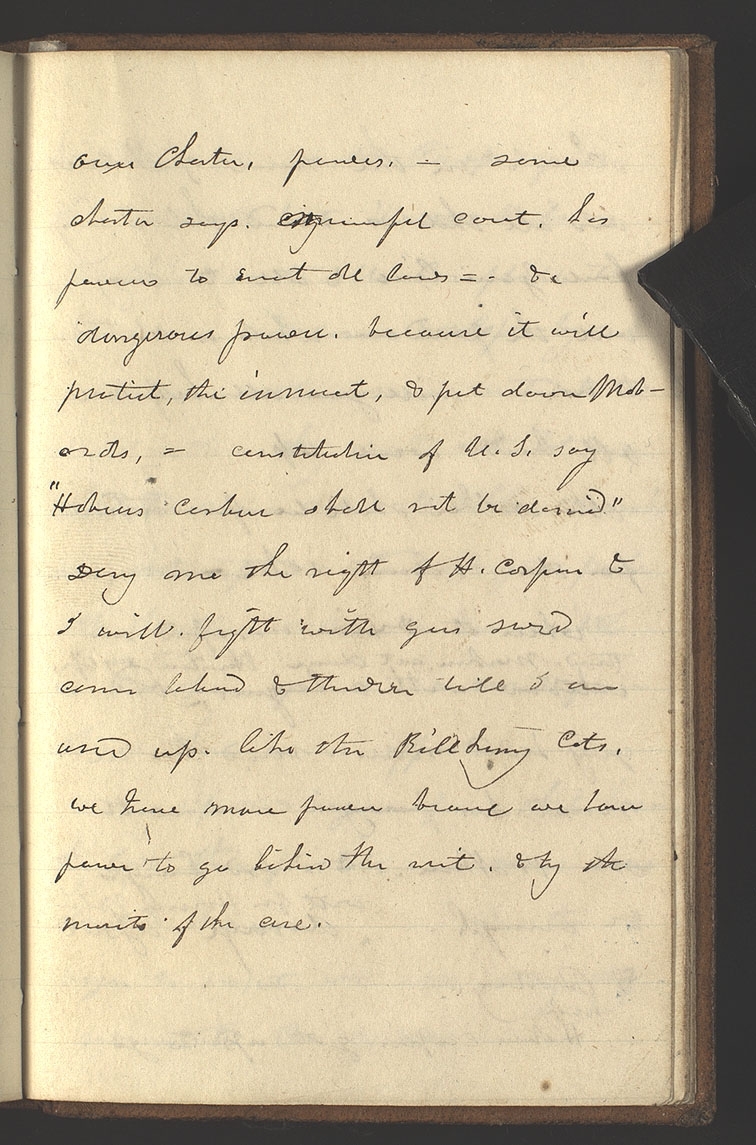 our Charter, powers. — some
charter says. municipal court. has
powers to enact all laws = - & a
dangerous power. because it will
protect, the innocent, & put down Mob-
ocrats, = constitution of U. S. say
"Habeus Corpus shall not be denied"
Deny me the right of H. Corpus &
I will. fight with gun sword
cannon & thunder till
used up. like the Killkenny Cats.
we have more power because we have
power to go behind the writ. & try the
merits of the case.